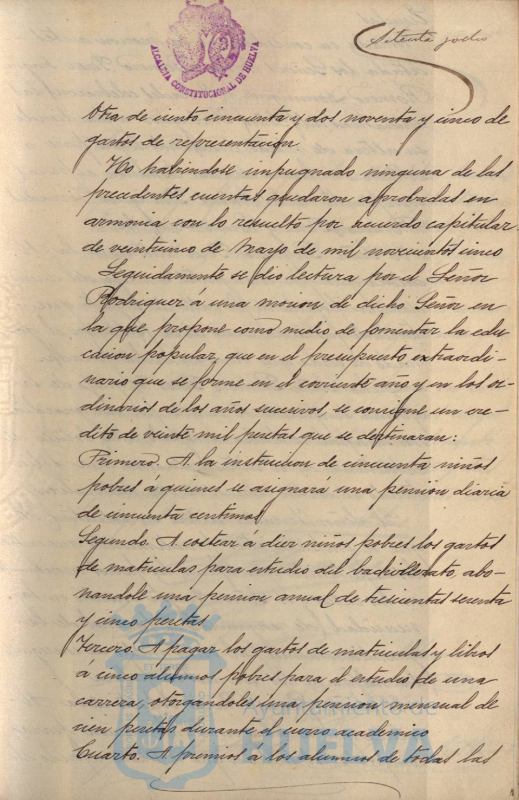 Setenta y ocho
ALCALDIA CONSTITUCIONAL DE HUELVA
Otra de ciento cincuenta y dos noventa y cinco de
gastos de representacion.
No habiendose impugnado ninguna de las
precedentes cuentas quedaron aprobadas en
armonia con lo resuelto por acuerdo capitular
de veinticinco de Mayo de mil novecientos cinco
Seguidamente se dio lectura por el Señor
Rodriguez á una mocion de dicho Señor en
la que propone como medio de fomentar la edu-
cacion popular, que en el presupuesto extraordi-
nario que se forme en el corriente año y en los or-
dinarios de los años sucesivos, se consigne un cre-
dito de veinte mil pesetas que se destinaran:
Primero. A la instrucion de cincuenta niños
pobres á quienes se asignará una pension diaria
de cincuenta centimos
Segundo. A costear á diez niños pobres los gastos
de matriculas para estudio del bachillerato, abo-
nandole una pension anual de trescientas sesenta
y cinco pesetas
Tercero. A pagar los gastos de matriculas y libros
á cinco alumnos pobres para el estudio de una
carrera, otorgandoles una pension mensual de
cien pesetas durante el curso académico
Cuarto. A premios á los alumnos de todas las
Ayuntamiento de
HUELVA